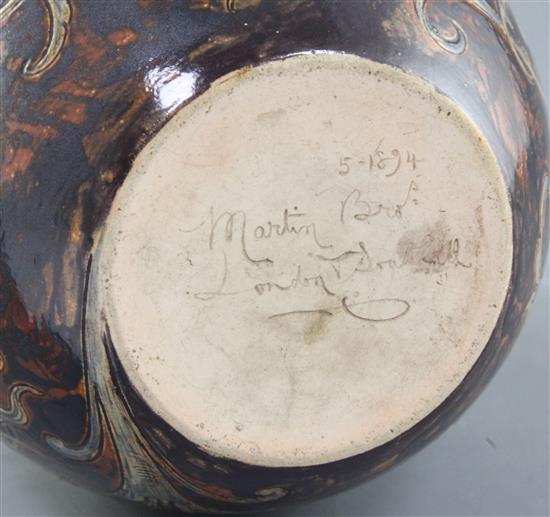 5-1894
Martin Bros
London & Southall